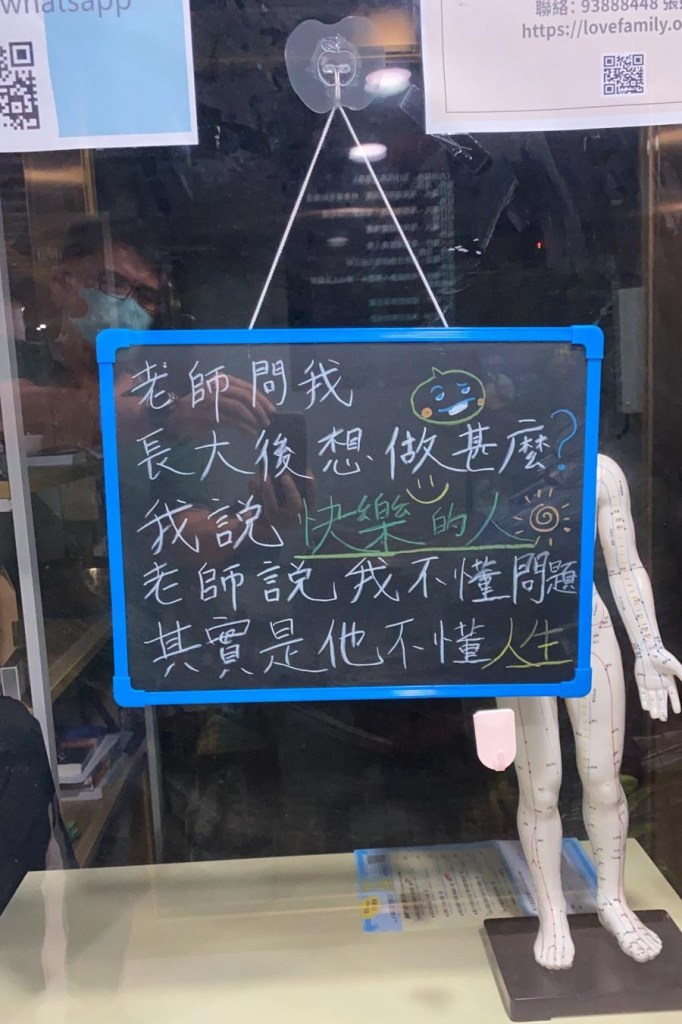 whatsapp
聯絡: 93888448 張
https://lovefamily.o
老師問我
長大後想做甚麼?
我說快樂的人
老師說我不懂問題
其實是他不懂人生